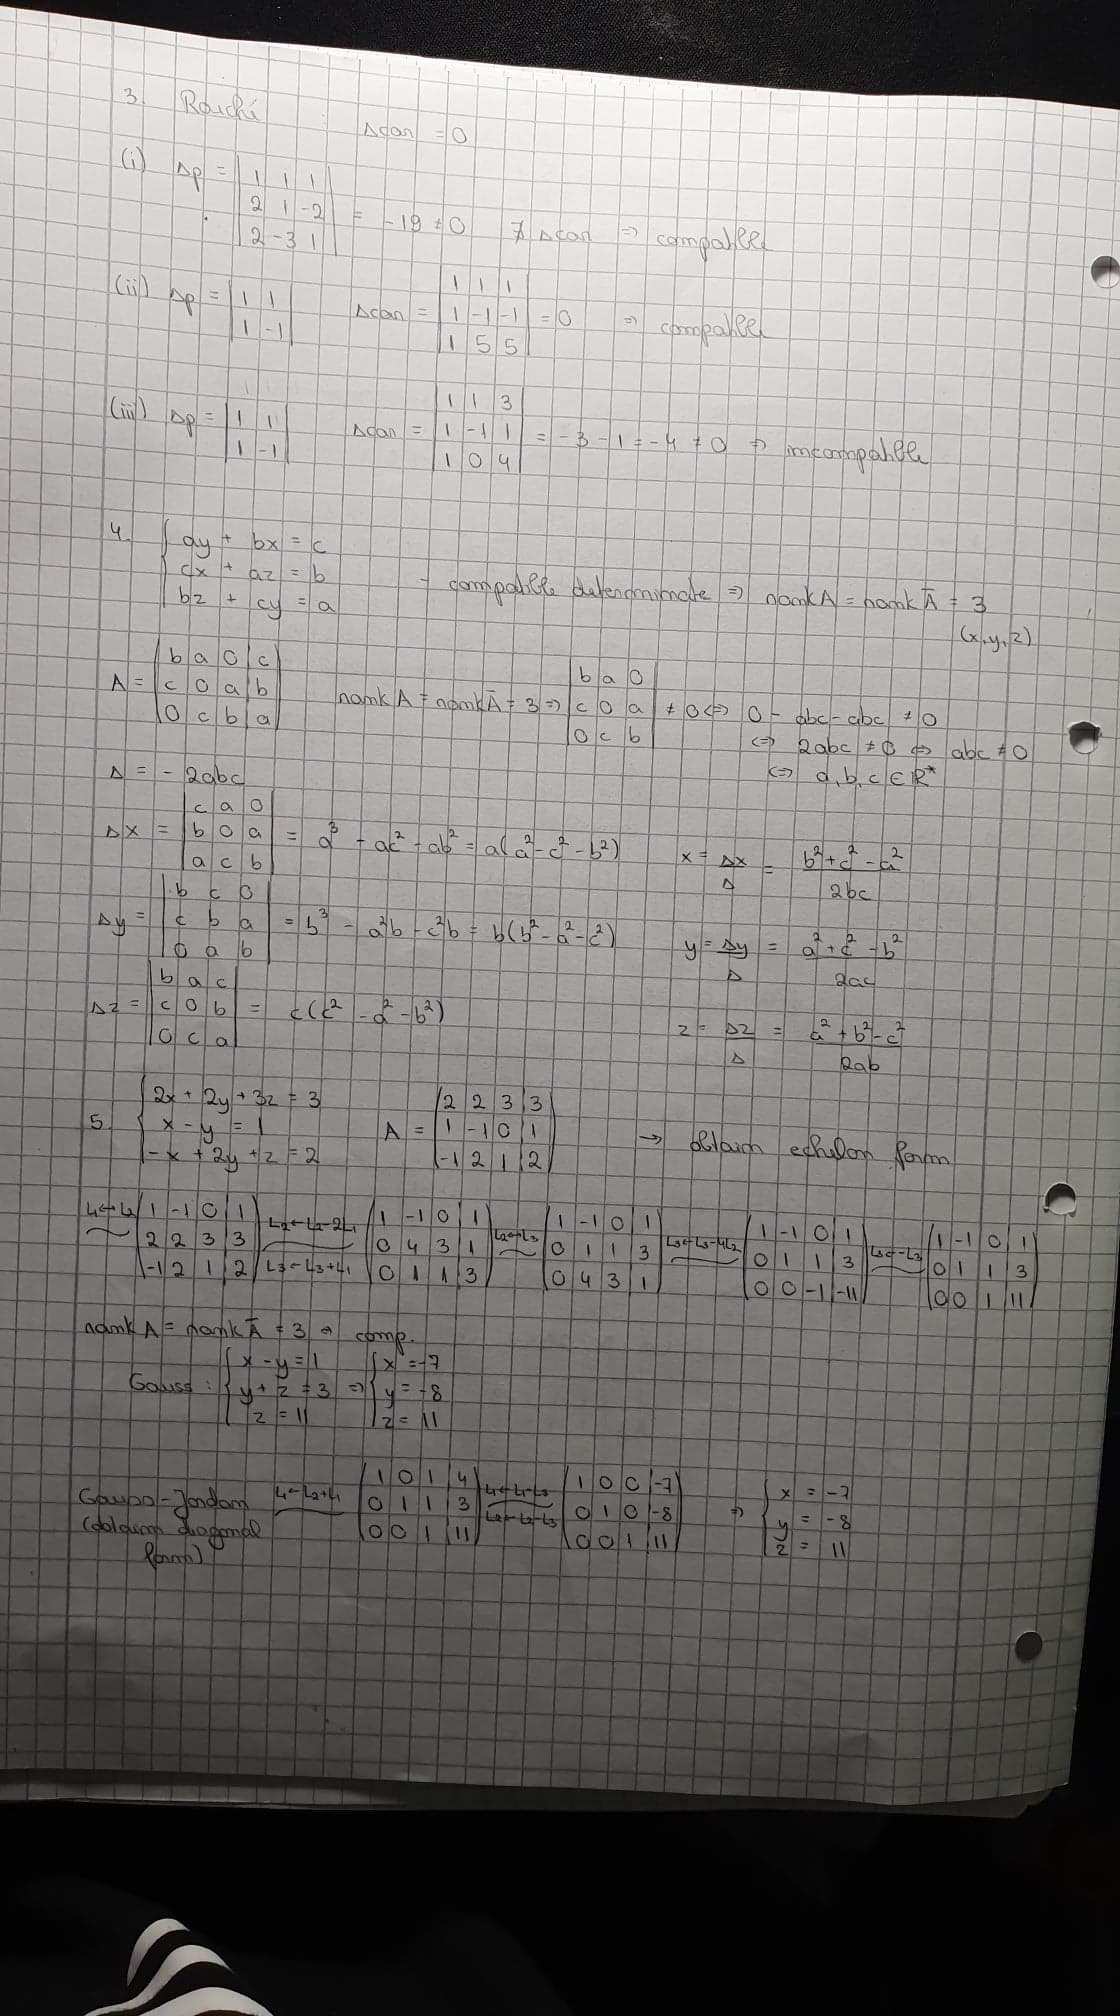 3. Rouché
Δcar = 0
(i) Δp = | 1 1 1 |
| 2 1 -2 | = -19 ≠ 0 ∄ Δcar ⇒ compatible
| 2 -3 1 |
(ii) Δp = | 1 1 | Δcar = | 1 1 1 |
| 1 -1 | | 1 -1 -1 | = 0 ⇒ compatible
| 1 5 5 |
(iii) Δp = | 1 1 | Δcar = | 1 1 3 |
| 1 -1 | | 1 -1 1 | = -3 - 1 = -4 ≠ 0 ⇒ incompatible
| 1 0 4 |
4. { ay + bx = c
cx + az = b
bz + cy = a
- compatible determinate ⇒ rank A = rank Ā = 3
(x,y,z)
A = ( b a 0 | c
c 0 a | b
0 c b | a )
rank A = rank Ā = 3 ⇒ | b a 0 |
| c 0 a | ≠ 0 ⇔ 0 - abc - abc ≠ 0
| 0 c b | ⇔ 2abc ≠ 0 ⇔ abc ≠ 0
⇔ a, b, c ∈ ℝ*
Δ = - 2abc
Δx = | c a 0 |
| b 0 a | = a³ - ac² - ab² = a(a² - c² - b²)
| a c b |
x = Δx/Δ = (b² + c² - a²)/2bc
Δy = | b c 0 |
| c b a | = b³ - a²b - c²b = b(b² - a² - c²)
| 0 a b |
y = Δy/Δ = (a² + c² - b²)/2ac
Δz = | b a c |
| c 0 b | = c(c² - a² - b²)
| 0 c a |
z = Δz/Δ = (a² + b² - c²)/2ab
5. { 2x + 2y + 3z = 3
x - y = 1
-x + 2y + z = 2
A = ( 2 2 3 | 3
1 -1 0 | 1
-1 2 1 | 2 )
→ obtain echelon form
L1↔L2 ( 1 -1 0 | 1
2 2 3 | 3
-1 2 1 | 2 )
L2←L2-2L1
L3←L3+L1
( 1 -1 0 | 1
0 4 3 | 1
0 1 1 | 3 )
L2↔L3 ( 1 -1 0 | 1
0 1 1 | 3
0 4 3 | 1 )
L3←L3-4L2 ( 1 -1 0 | 1
0 1 1 | 3
0 0 -1 | -11 )
L3←-L3 ( 1 -1 0 | 1
0 1 1 | 3
0 0 1 | 11 )
rank A = rank Ā = 3 ⇒ comp.
Gauss : { x - y = 1
y + z = 3
z = 11
⇒ { x = -7
y = -8
z = 11
Gauss-Jordan
(obtain diagonal
form)
L1←L2+L1 ( 1 0 1 | 4
0 1 1 | 3
0 0 1 | 11 )
L1←L1-L3
L2←L2-L3
( 1 0 0 | -7
0 1 0 | -8
0 0 1 | 11 )
⇒ { x = -7
y = -8
z = 11